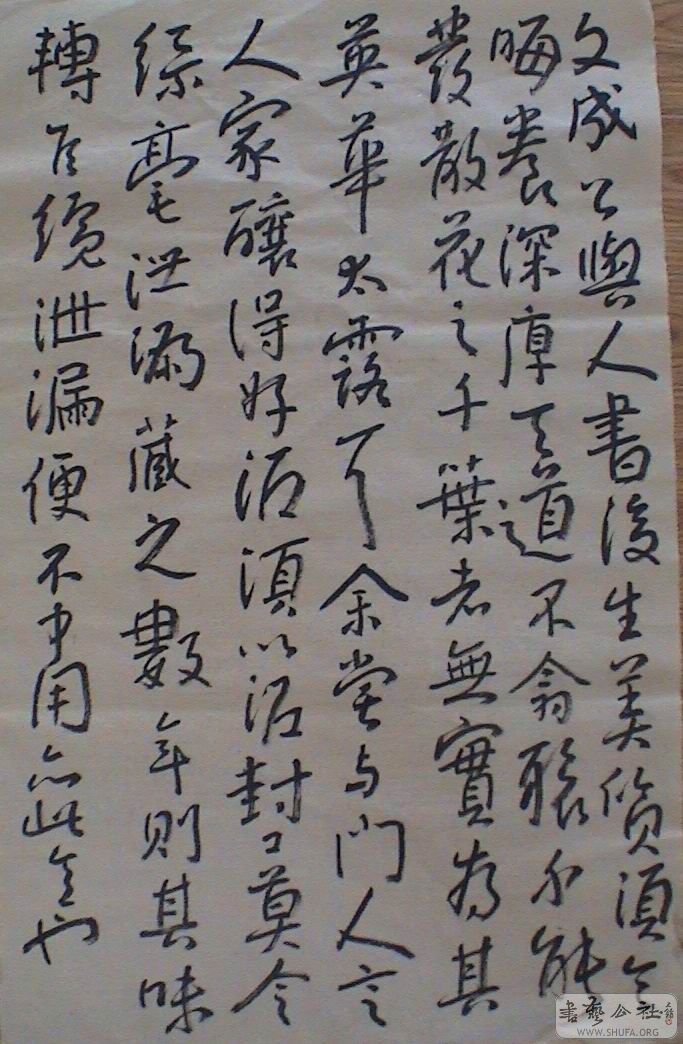 文成公與人書後生美质須令
晦養深厚天道不翕聚不能
發散花之千葉者無實為其
英華太露耳余尝与門人言
人家釀得好酒須以泥封口莫令
綜毫泄漏藏之數年則其味
轉佳纔泄漏便不中用亦此意也
書藝公社
WWW.SHUFA.ORG